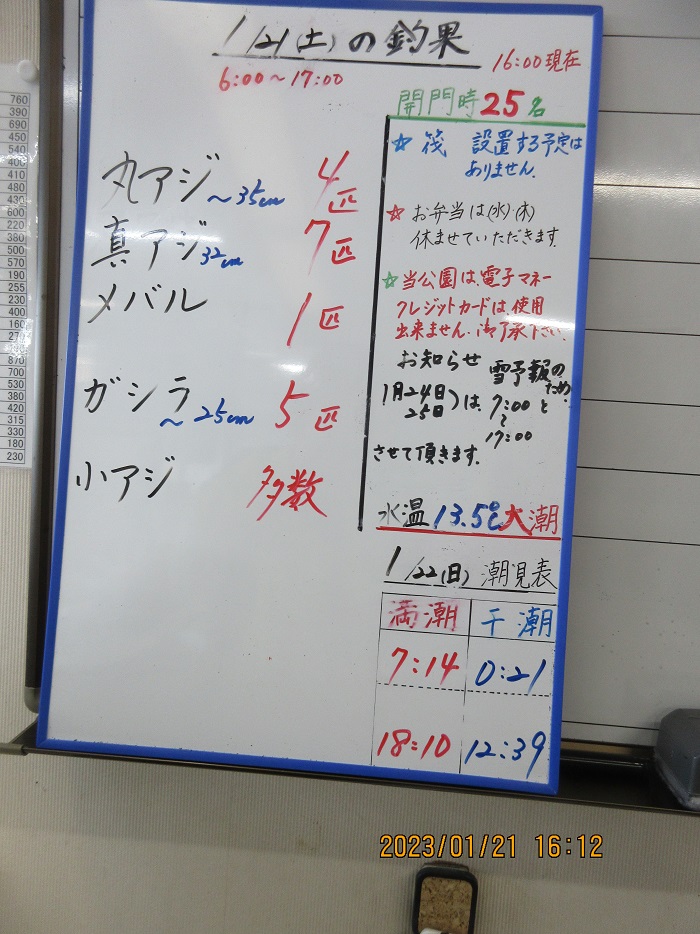 1/21(土)の釣果
16:00現在
6:00～17:00
丸アジ ～35cm 4匹
真アジ 32cm 7匹
メバル 1匹
ガシラ ～25cm 5匹
小アジ 多数
開門時25名
☆ 筏 設置する予定は
ありません.
☆ お弁当は(水)・(木)
休ませていただきます.
☆当公園は、電子マネー
クレジットカードは、使用
出来ません.御了承下さい.
お知らせ 雪予報のため
1月24日
25日)は、7:00～17:00と
させて頂きます.
水温13.5℃大潮
1/22(日) 潮見表
満潮 干潮
7:14 0:21
18:10 12:39
760
390
690
450
540
400
410
480
430
600
220
380
500
570
190
255
230
400
160
270
870
700
530
380
420
315
330
180
230
2023/01/21 16:12